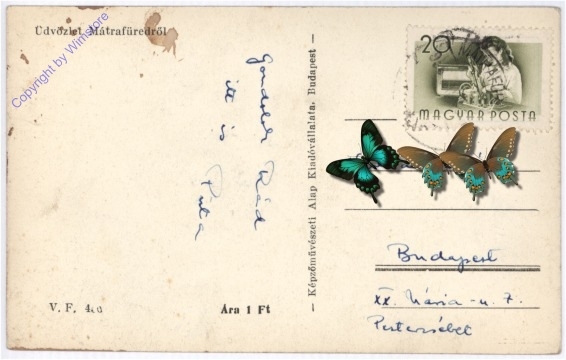 Üdvözlet Mátrafüredről
Copyright by Winstore
Gondolok Rád
itt is
– Képzőművészeti Alap Kiadóvállalata, Budapest –
20
MAGYAR POSTA
Budapest
XX. Mária-u. 7.
Pesterzsébet
V. F.
Ára 1 Ft